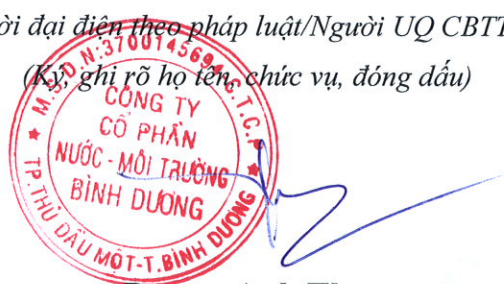 ời đại diện theo pháp luật/Người UQ CBTT
(Ký, ghi rõ họ tên, chức vụ, đóng dấu)
M.S.D.N:3700145694-C.T.C.P
CÔNG TY
CỔ PHẦN
NƯỚC - MÔI TRƯỜNG
BÌNH DƯƠNG
TP.THỦ DẦU MỘT-T.BÌNH DƯƠNG